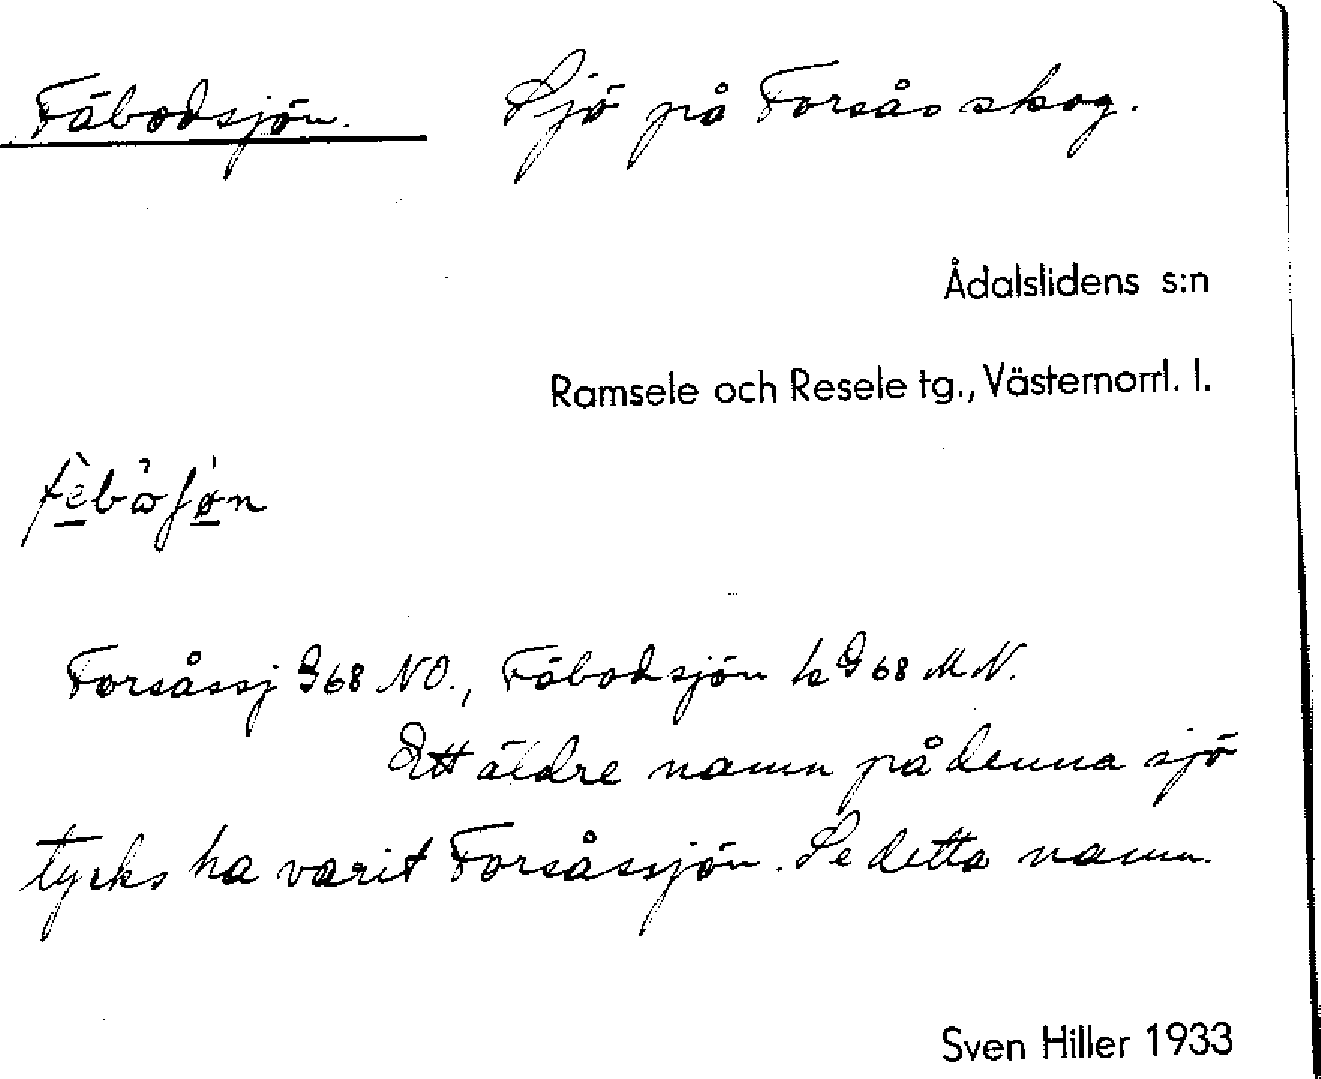 Fäbodsjön. Sjö på Forsås skog.
Ådalslidens s:n
Ramsele och Resele tg., Västernorrl. l.
Forsåssj G68 NO., Fäbodsjön k G68 M.N.
Ett äldre namn på denna sjö
tycks ha varit Forsåssjön. Se detta namn.
Sven Hiller 1933